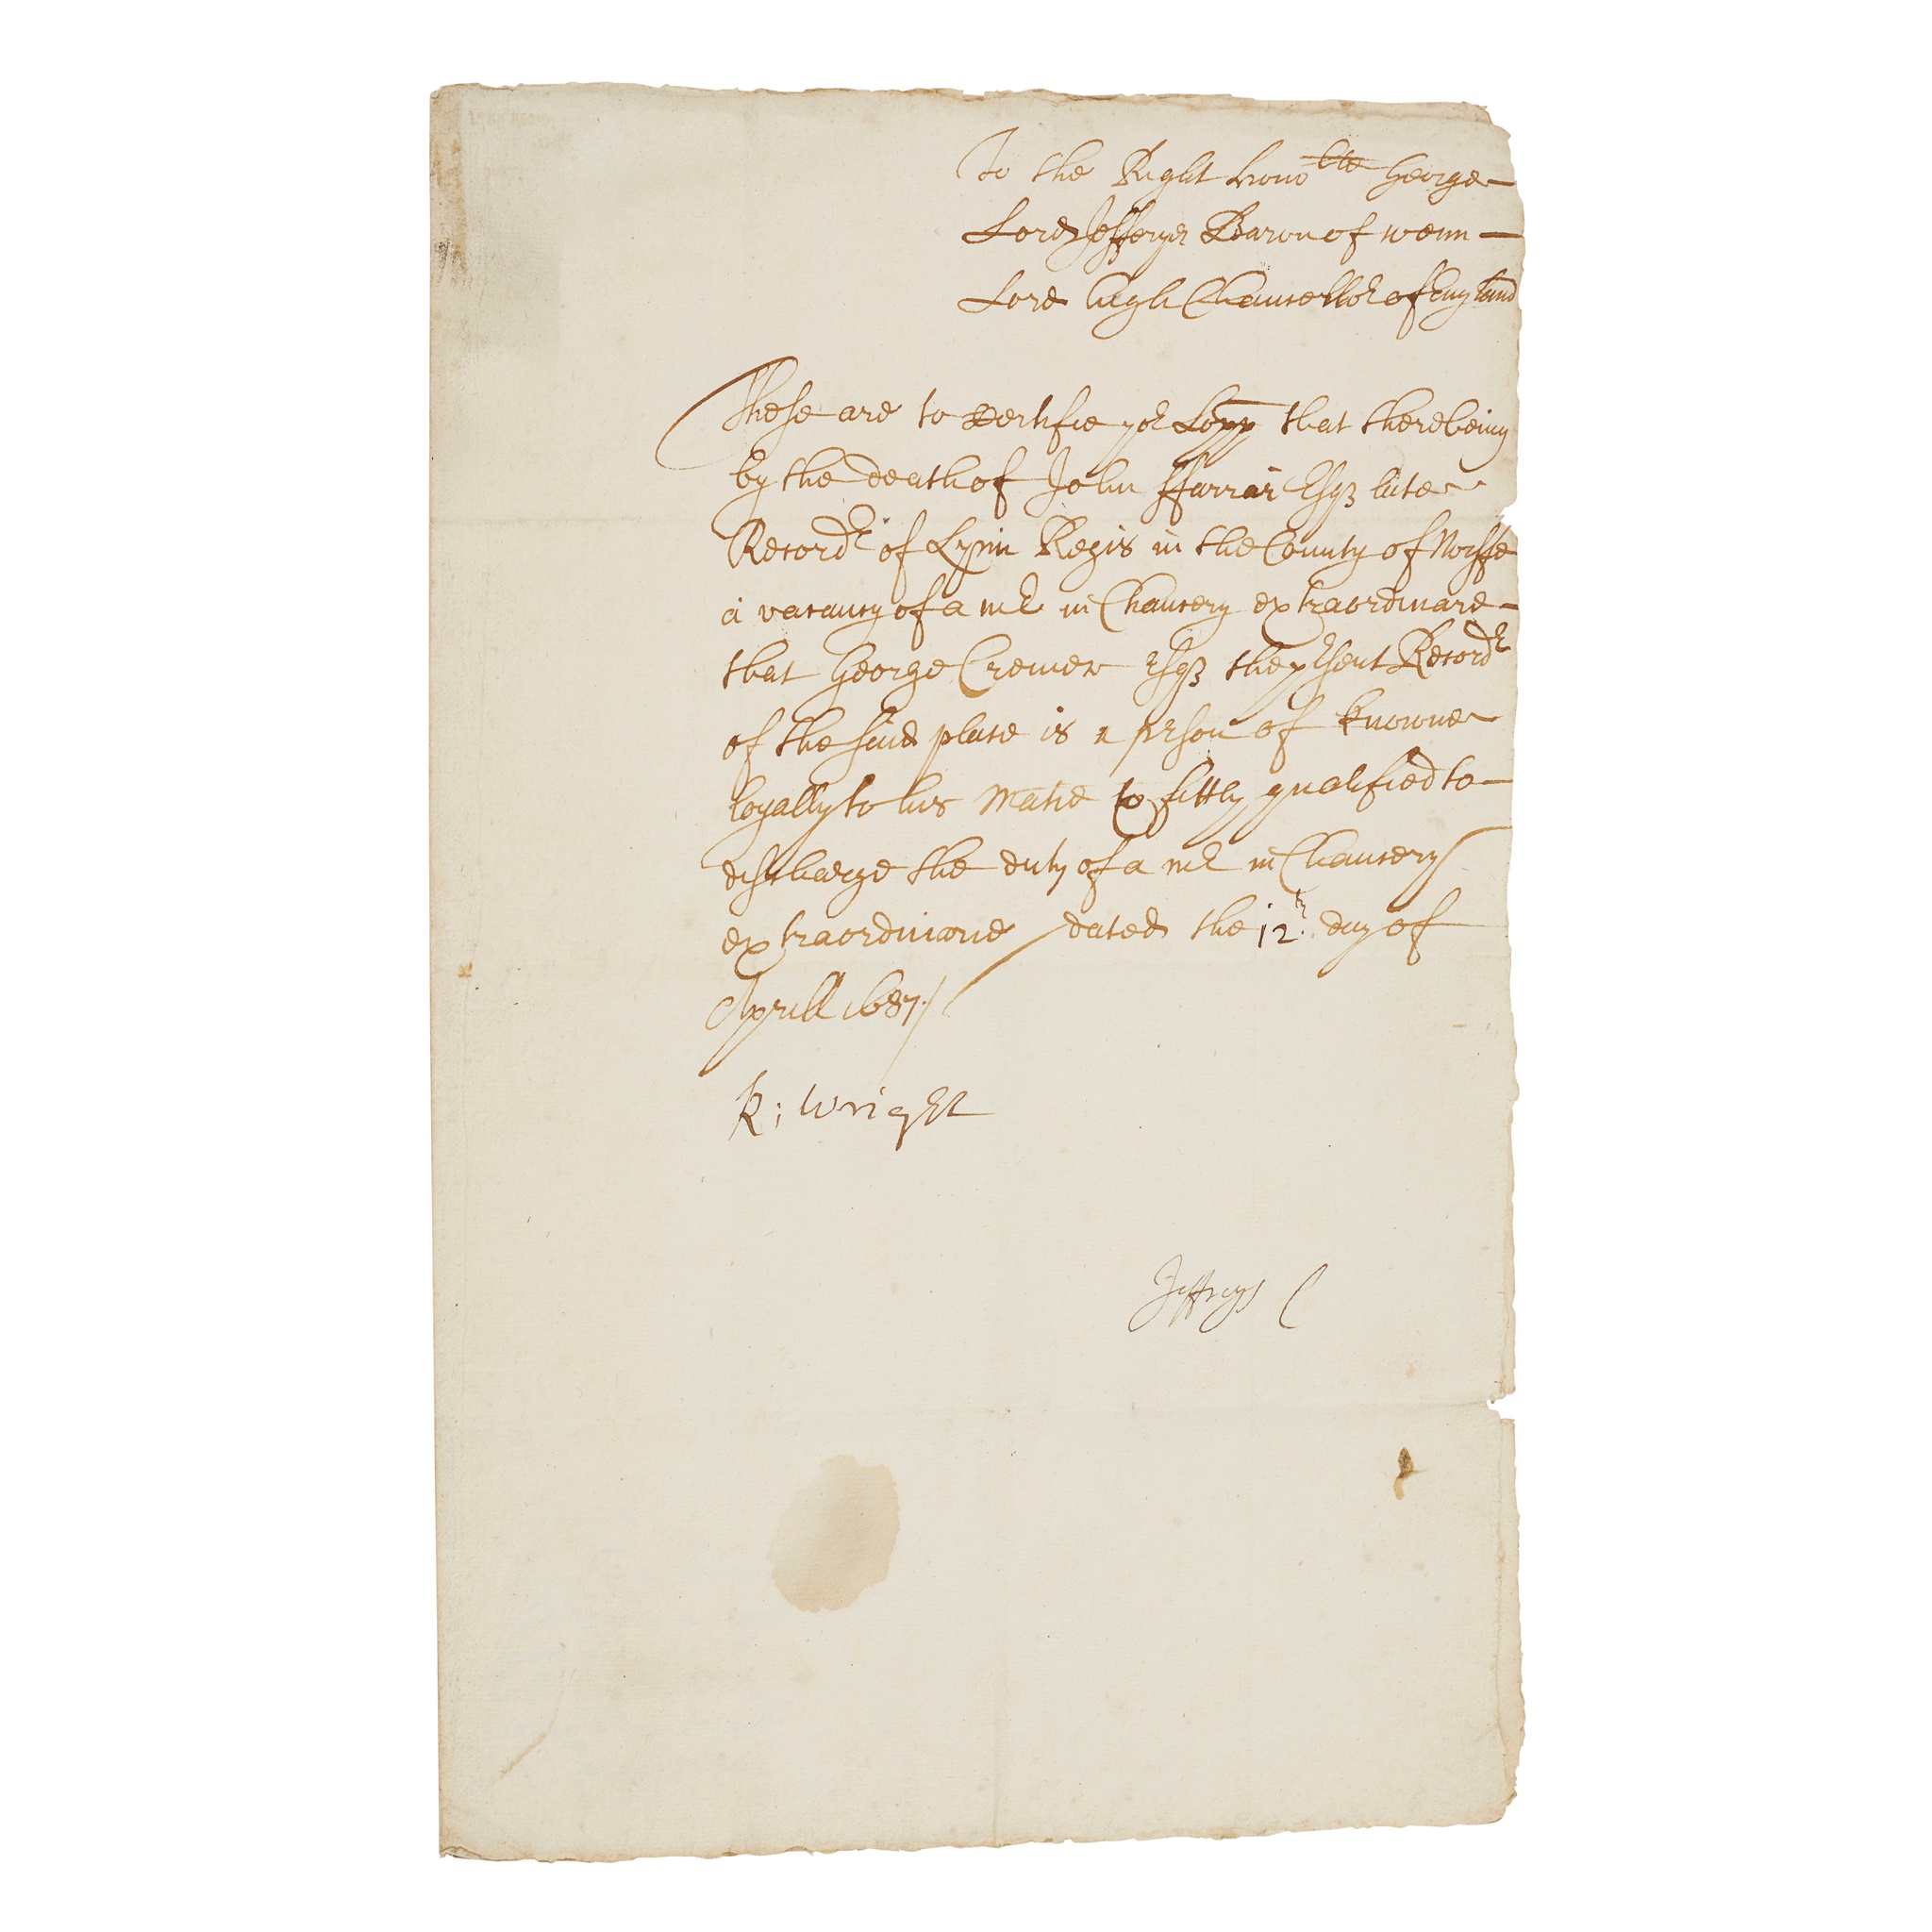 To the Right hono ble George
Lord Jefferyes Baron of wem
Lord high Chancellor of England
These are to certifie yor Lopp that there being
by the death of John ffarrar Esqr late
Recordr of Lynn Regis in the County of Norffe
a vacancy of a mr in Chancery extraordinare
that George Cremer Esqr the prsent Recordr
of the said place is a prson of knowne
loyalty to his Matie & fittly qualified to
discharge the duty of a mr in Chancery
extraordinarie dated the 12th day of
Aprill 1687./
R: Wright
Jeffreys C